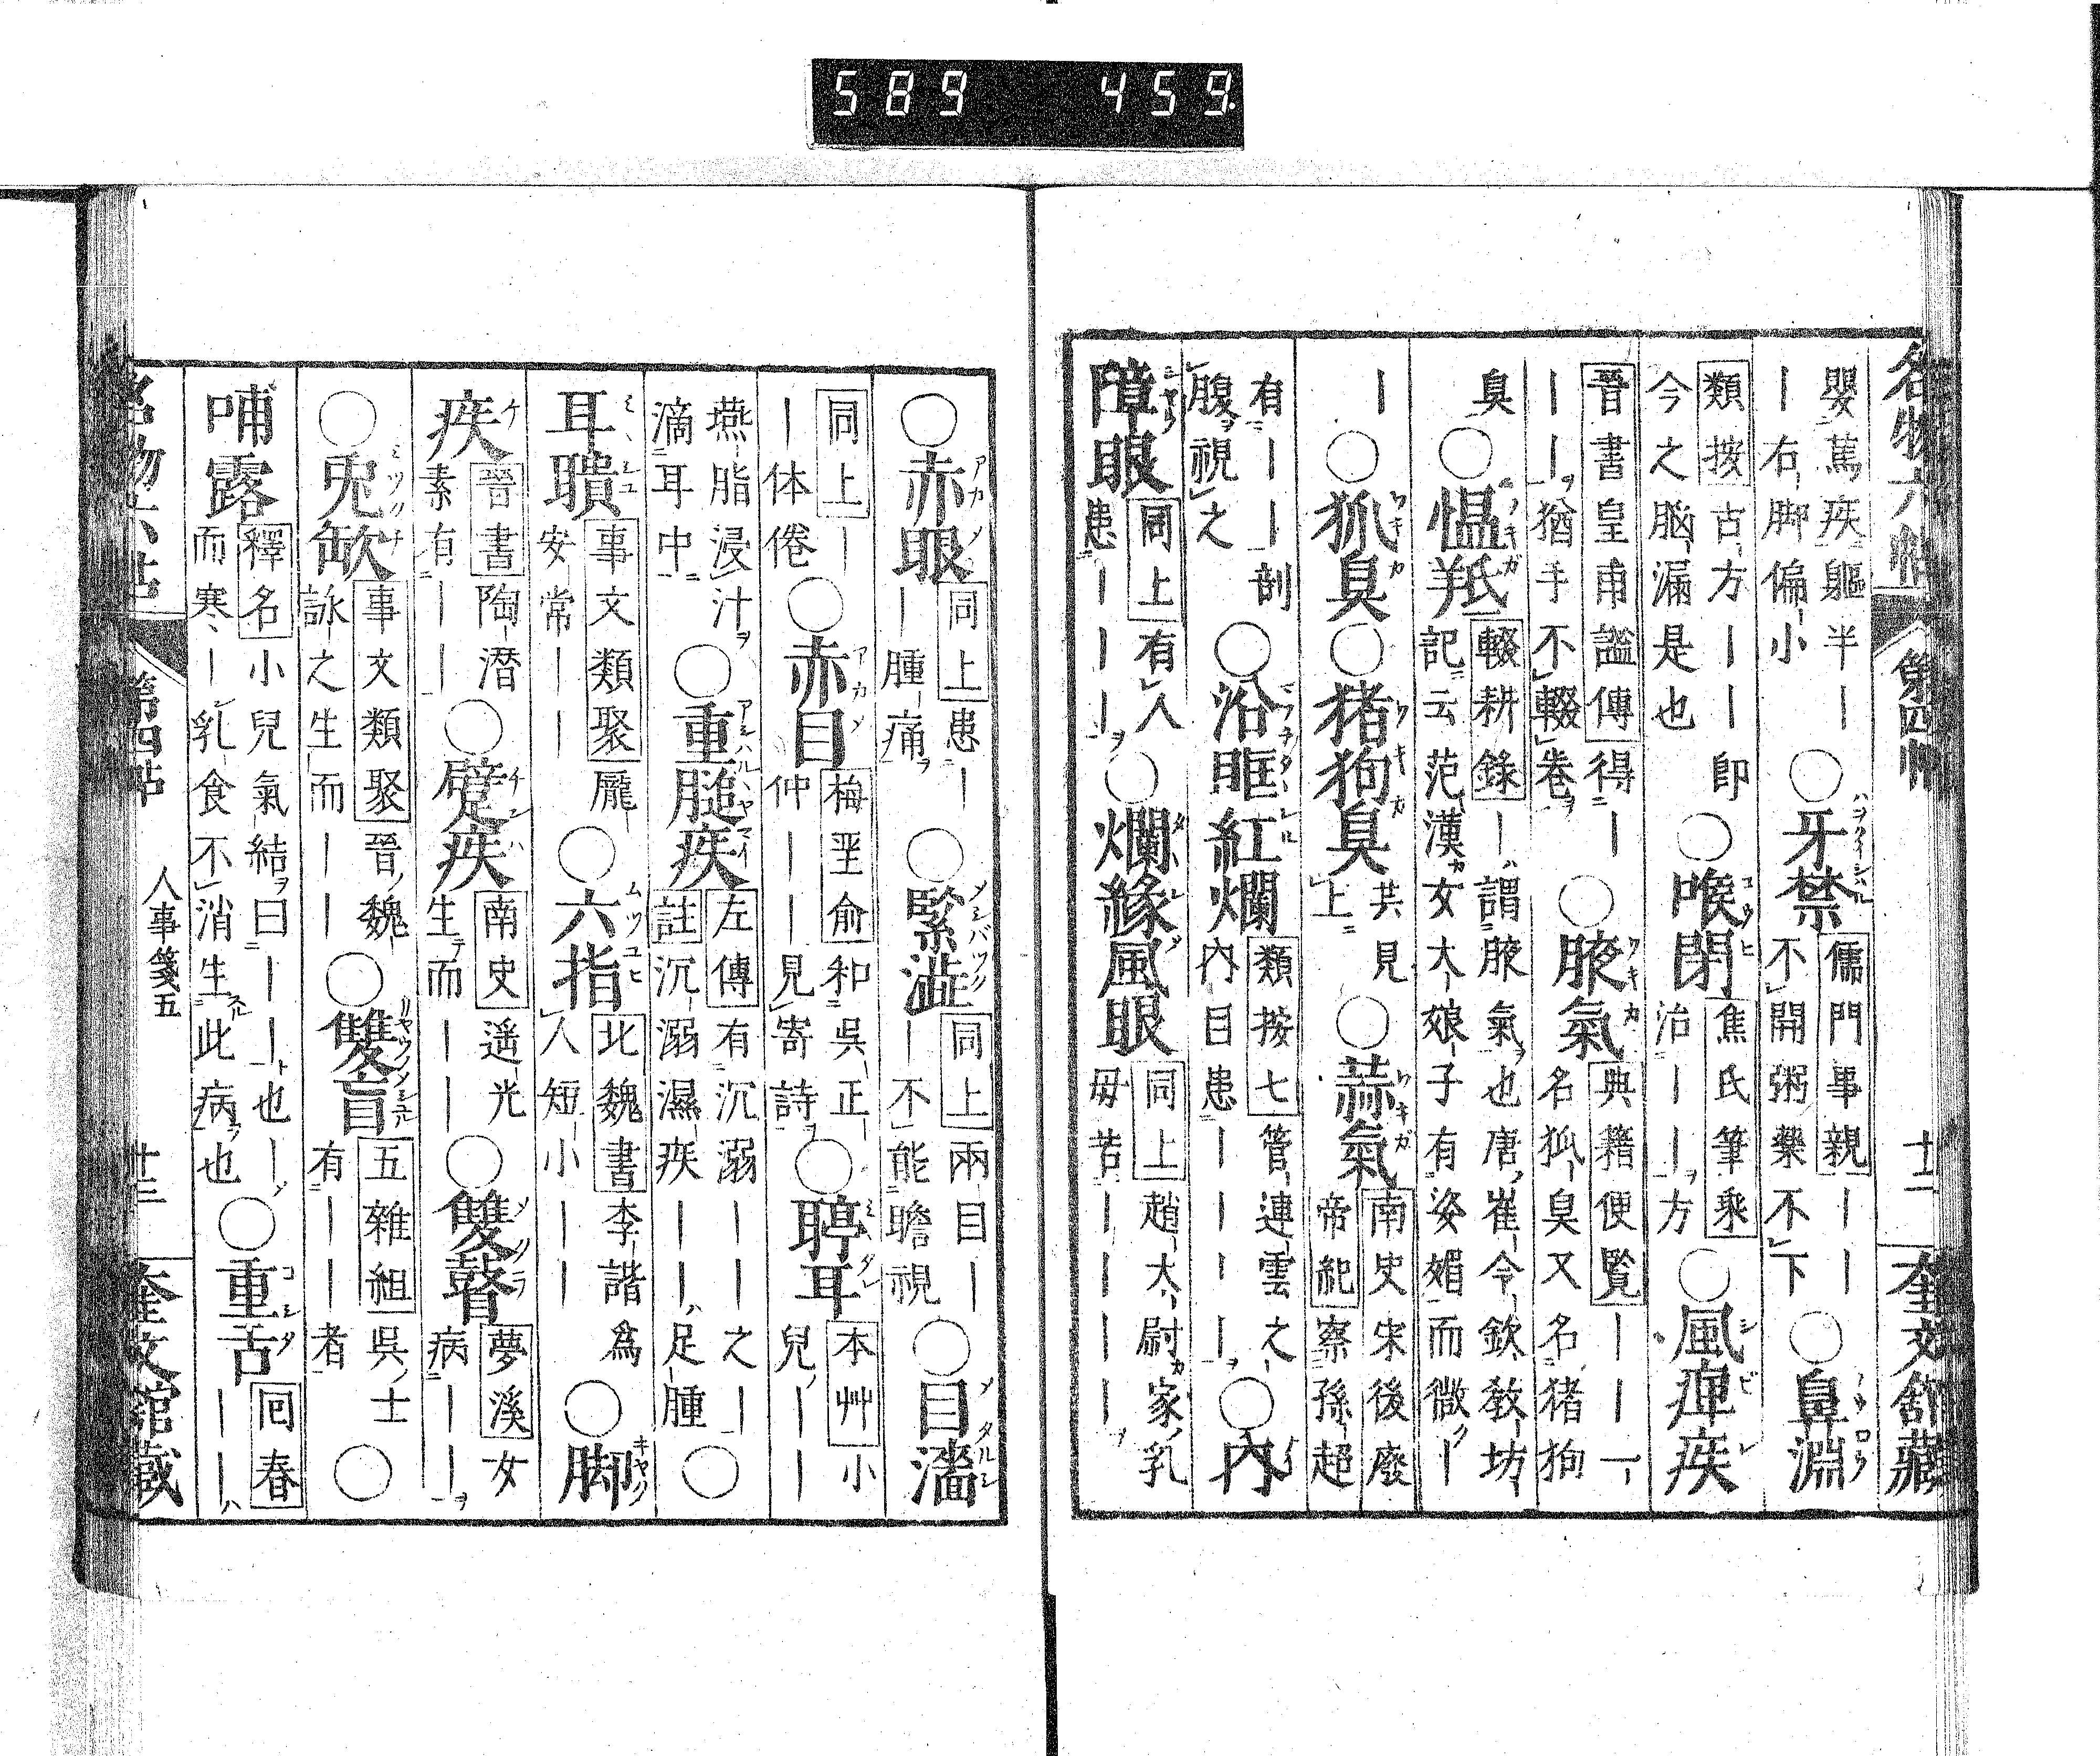 589 459
名物六帖 第四帖 十二 奎文館藏
嬰篤疾軀半―
―右脚偏小
○牙禁 儒門事親―― 不開粥藥不下
○鼻淵
類按古方――即
今之腦漏是也
○喉閉 焦氏筆乘 治――方
○風痺疾
晉書皇甫謐傳得―
――猶手不輟卷
○腋氣 典籍便覧――一
名狐臭又名猪狗
臭
○慍羝 輟耕錄―謂腋氣也唐崔令欽教坊
記云范漢女大娘子有姿媚而微―
―
○狐臭
○猪狗臭 共見上
○蒜氣 南史宋後廢
帝紀察孫超
有――剖
腹視之
○沿眶紅爛 類按七管連雲之
內目患――――
○內
障眼 同上有人
患―――
○爛緣風眼 同上趙大尉家乳
母苦――――
○赤眼 同上患―
―腫痛
○緊澁 同上兩目―
―不能瞻視
○目濇
同上―
―体倦
○赤目 梅聖俞和吳正
仲――見寄詩
○聤耳 本艸小
兒――
燕脂浸汁
滴耳中
○重膇疾 左傳有沉溺――之―
註沉溺濕疾――足腫
○
耳聵 事文類聚龐
安常――
○六指 北魏書李諧爲
人短小――
○脚
疾 晉書陶潛
素有――
○躄疾 南史遥光
生而――
○雙瞽 夢溪女
病――
○兎缺 事文類聚晉魏
詠之生而――
○雙盲 五雜組吳士
有――者
○
哺露 釋名小兒氣結曰――也―
而寒―乳食不消生此病也
○重舌 回春
――
名物六帖 第四帖 人事箋五 十三 奎文館藏